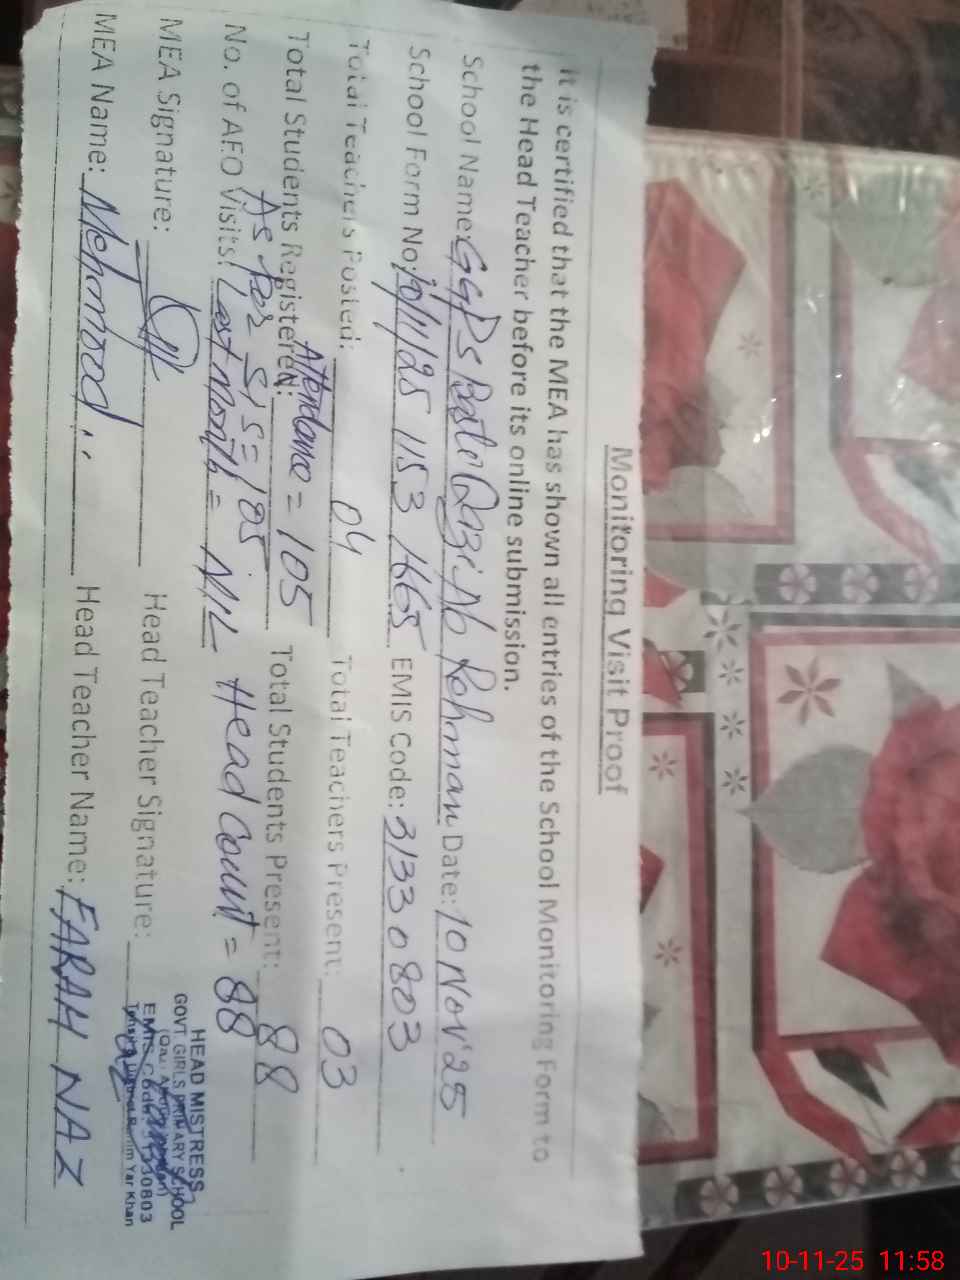 Monitoring Visit Proof
It is certified that the MEA has shown all entries of the School Monitoring Form to
the Head Teacher before its online submission.
School Name: GGPS Basti Qazi Ab Rehman Date: 10 Nov'25
School Form No: 10/11/25 1153 1665 EMIS Code: 31330803
Total Teachers Posted: 04 Total Teachers Present: 03
Total Students Registered: Attendance = 105 Total Students Present: 88
As Per SIS = 105 Head Count = 88
No. of AEO Visits: Last month = NIL
MEA Signature: Head Teacher Signature:
MEA Name: Mehmood.. Head Teacher Name: FARAH NAZ
HEAD MISTRESS
GOVT GIRLS PRIMARY SCHOOL
EMIS Code: 31330803
Rahim Yar Khan
10-11-25 11:58